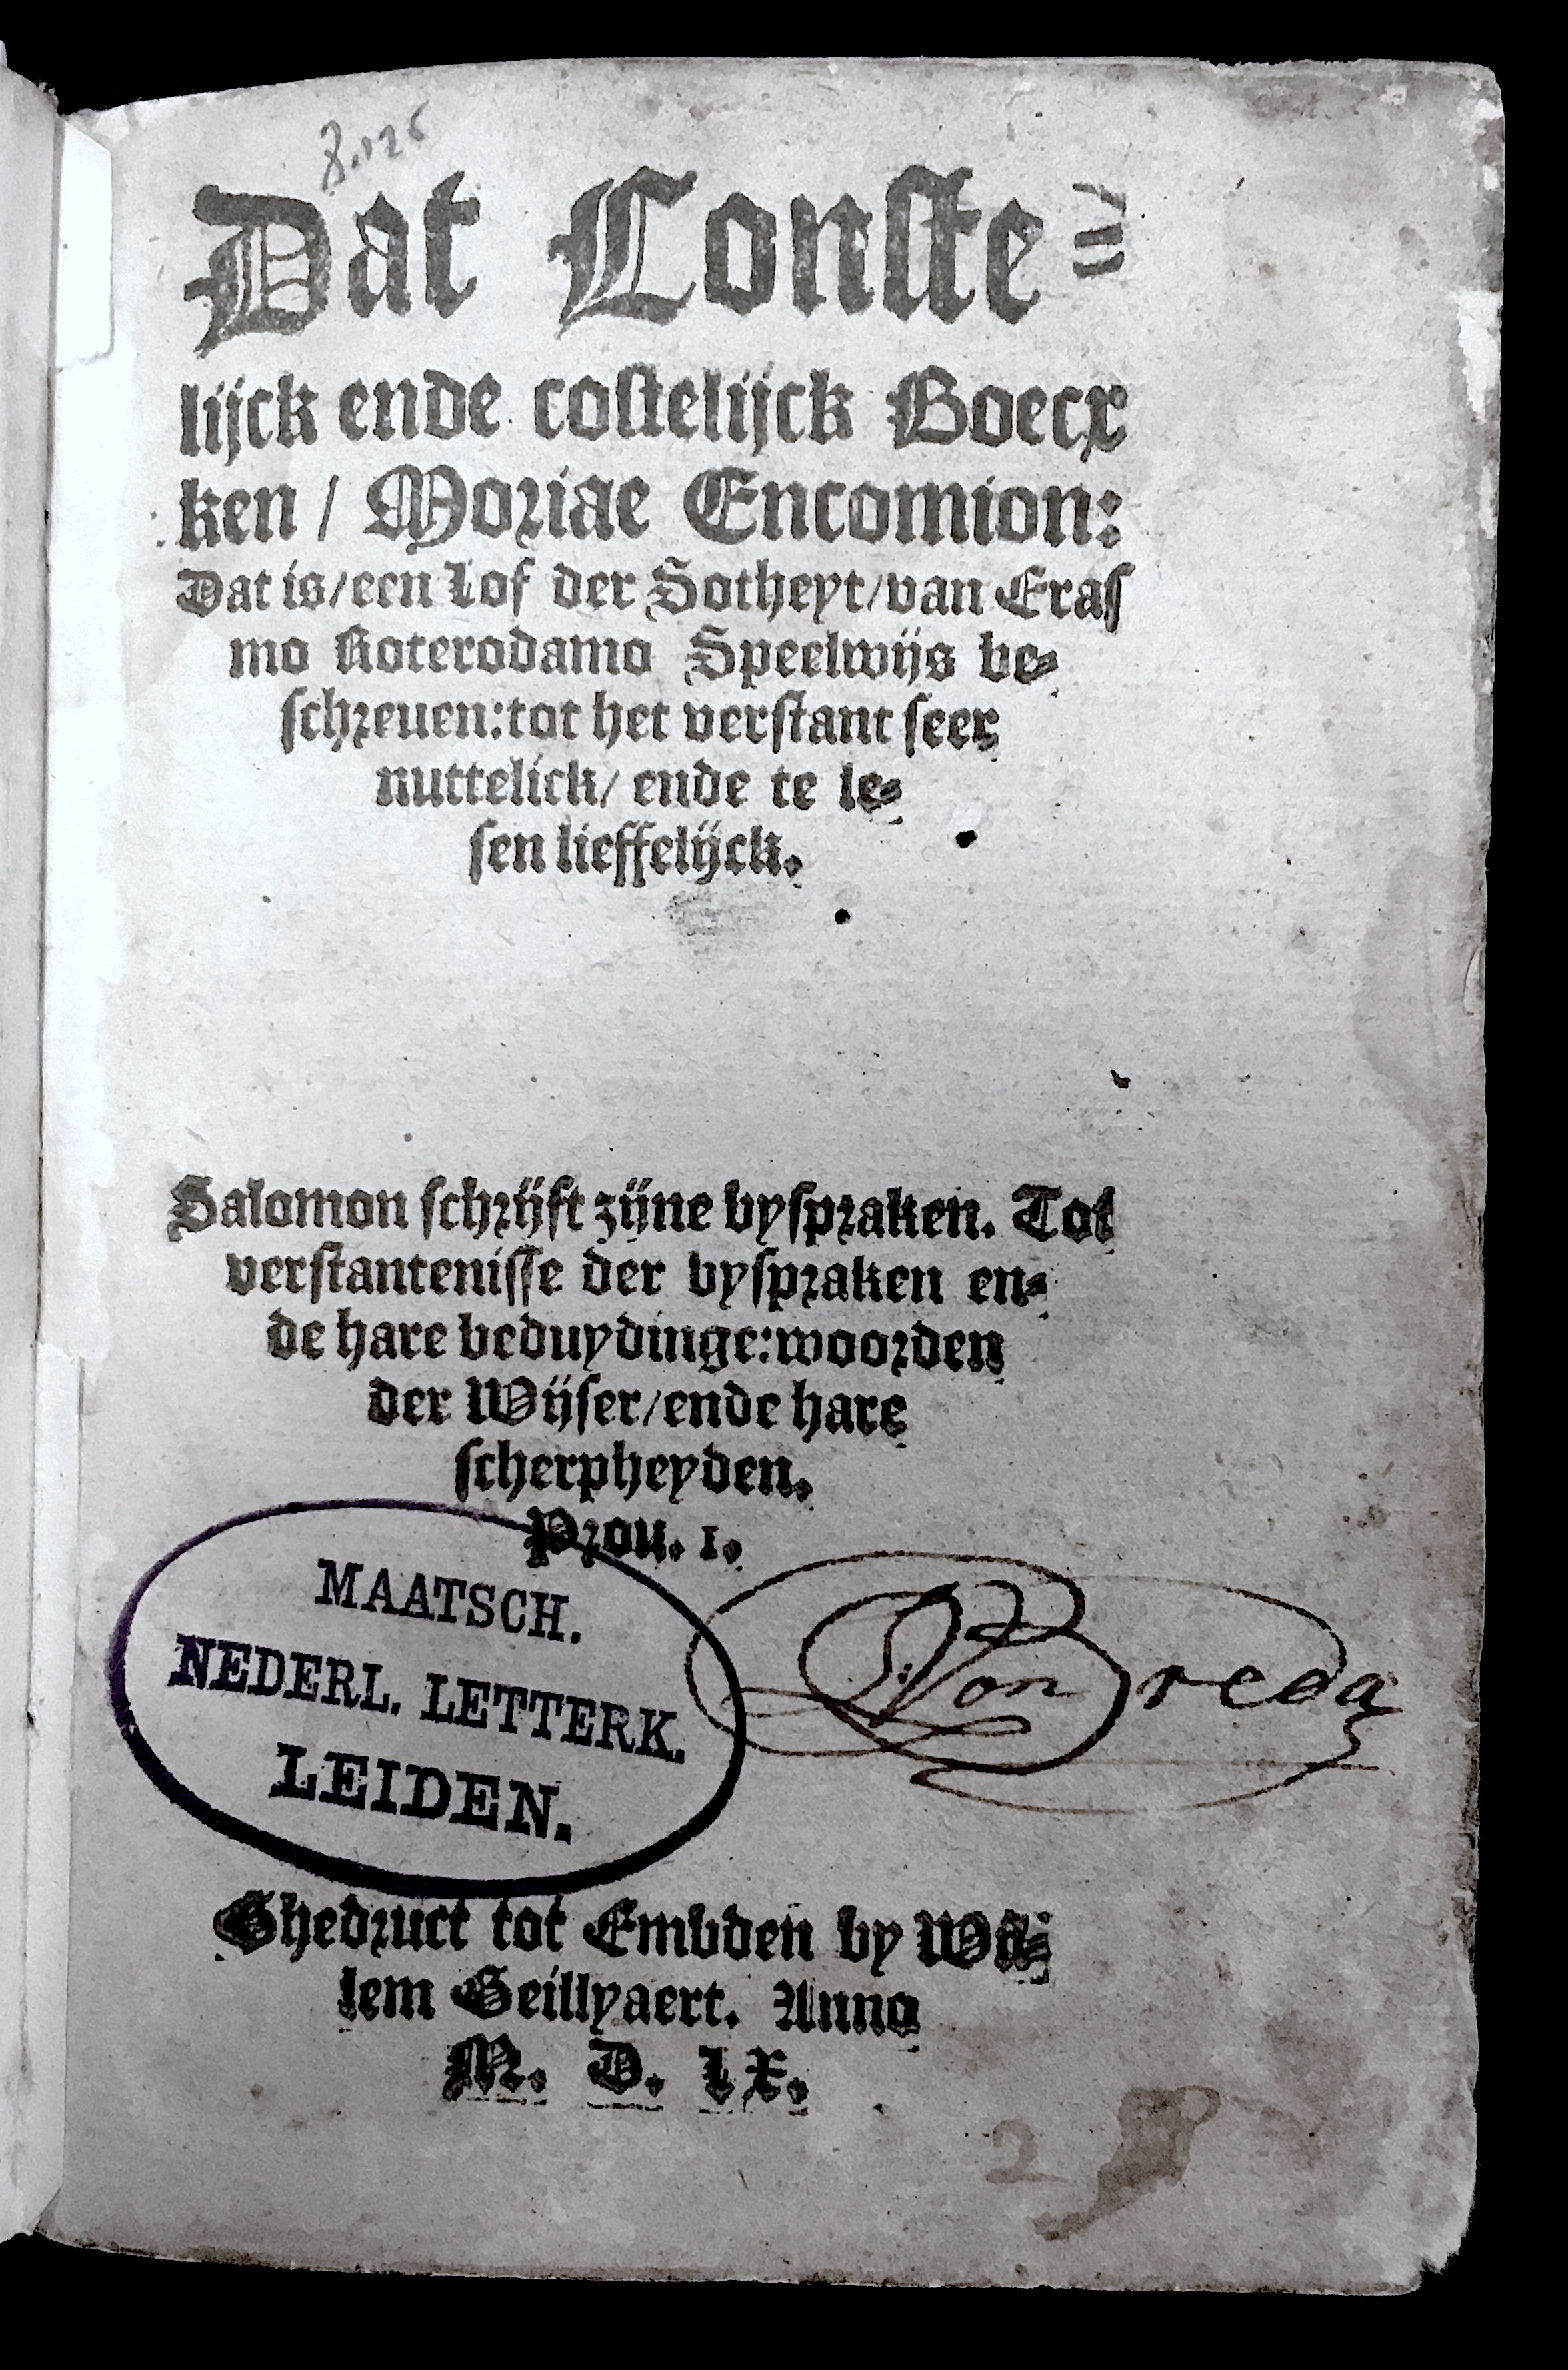 8.126
Dat Conste⸗
lijck ende costelijck Boecx
ken / Moriae Encomion:
Dat is/een Lof der Sotheyt/van Eras
mo Roterodamo Speelwijs be⸗
schreuen:tot het verstant seer
nuttelick/ ende te le⸗
sen lieffelijck.
Salomon schrijft zijne byspraken. Tot
verstantenisse der byspraken en⸗
de hare beduydinge:woorden
der Wijser/ende hare
scherpheyden.
Prou. 1.
MAATSCH.
NEDERL. LETTERK.
LEIDEN.
Von Breda
Ghedruct tot Embden by Wil⸗
lem Geillyaert. Anno
M. D. LX.
2